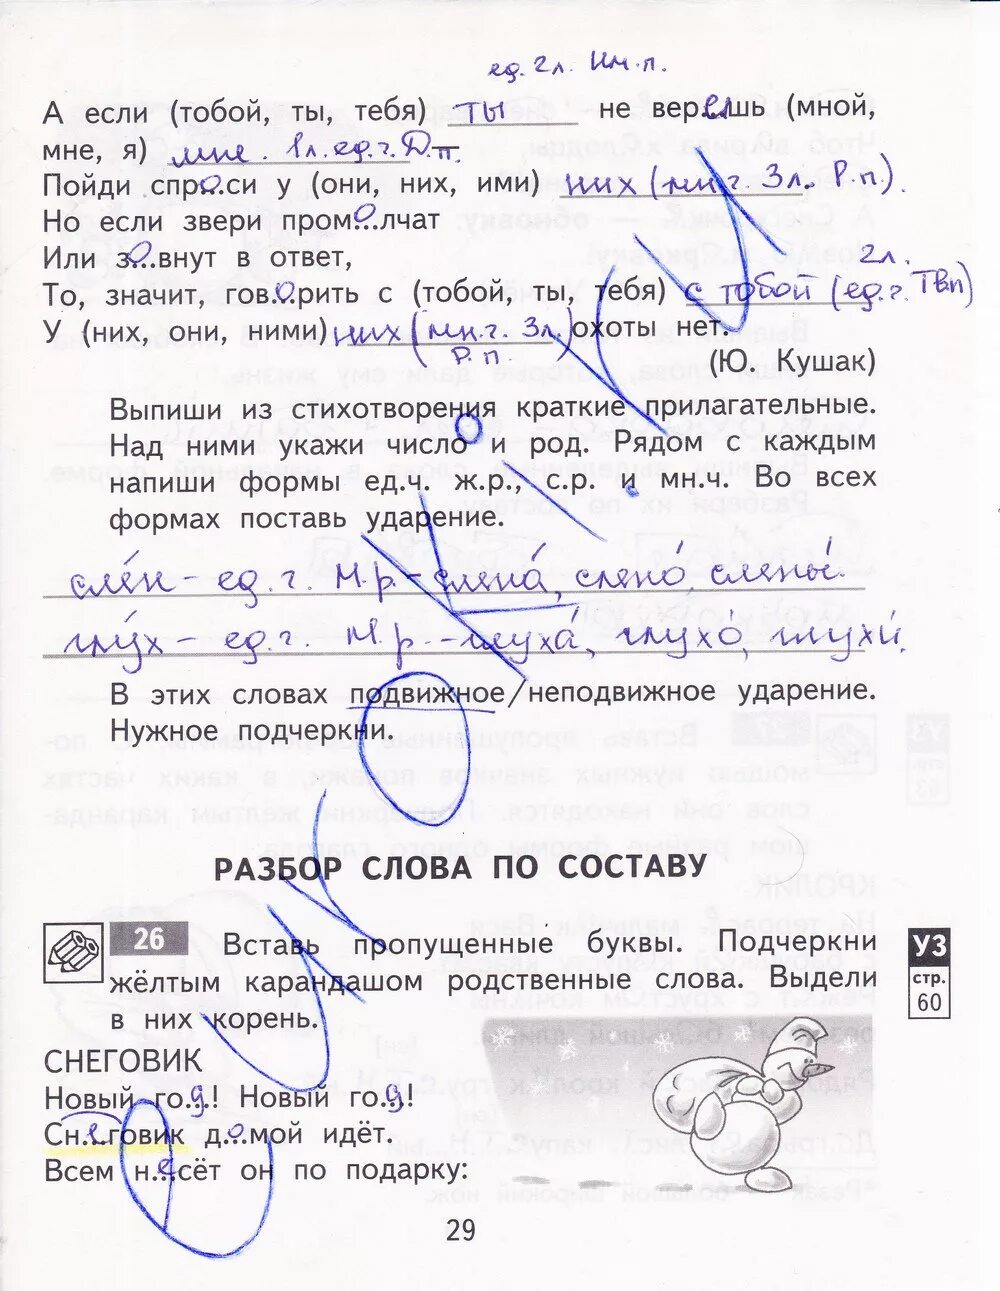 ед. 2л. Им.п.
А если (тобой, ты, тебя) ты не веришь (мной,
мне, я) мне. 1л. ед.ч. Д.п.
Пойди спр.о.си у (они, них, ими) них (мн.ч. 3л. Р.п.).
Но если звери пром.о.лчат
Или з.е.внут в ответ,
2л.
То, значит, гов.о.рить с (тобой, ты, тебя) с тобой (ед.ч. Твп)
У (них, они, ними) них (мн.ч. 3л.) охоты нет.
(Р.п.
(Ю. Кушак)
Выпиши из стихотворения краткие прилагательные.
Над ними укажи число и род. Рядом с каждым
напиши формы ед.ч. ж.р., с.р. и мн.ч. Во всех
формах поставь ударение.
сле́п - ед.ч. М.р. - слепа́, слепо́ слепы́.
глу́х - ед.ч. М.р. - глуха́, глухо́, глухи́.
В этих словах подвижное/неподвижное ударение.
Нужное подчеркни.
РАЗБОР СЛОВА ПО СОСТАВУ
26 Вставь пропущенные буквы. Подчеркни
жёлтым карандашом родственные слова. Выдели
в них корень.
УЗ
стр.
60
СНЕГОВИК
Новый го.д.! Новый го.д!
Сн.е.говик д.о.мой идёт.
Всем н.е.сёт он по подарку:
29